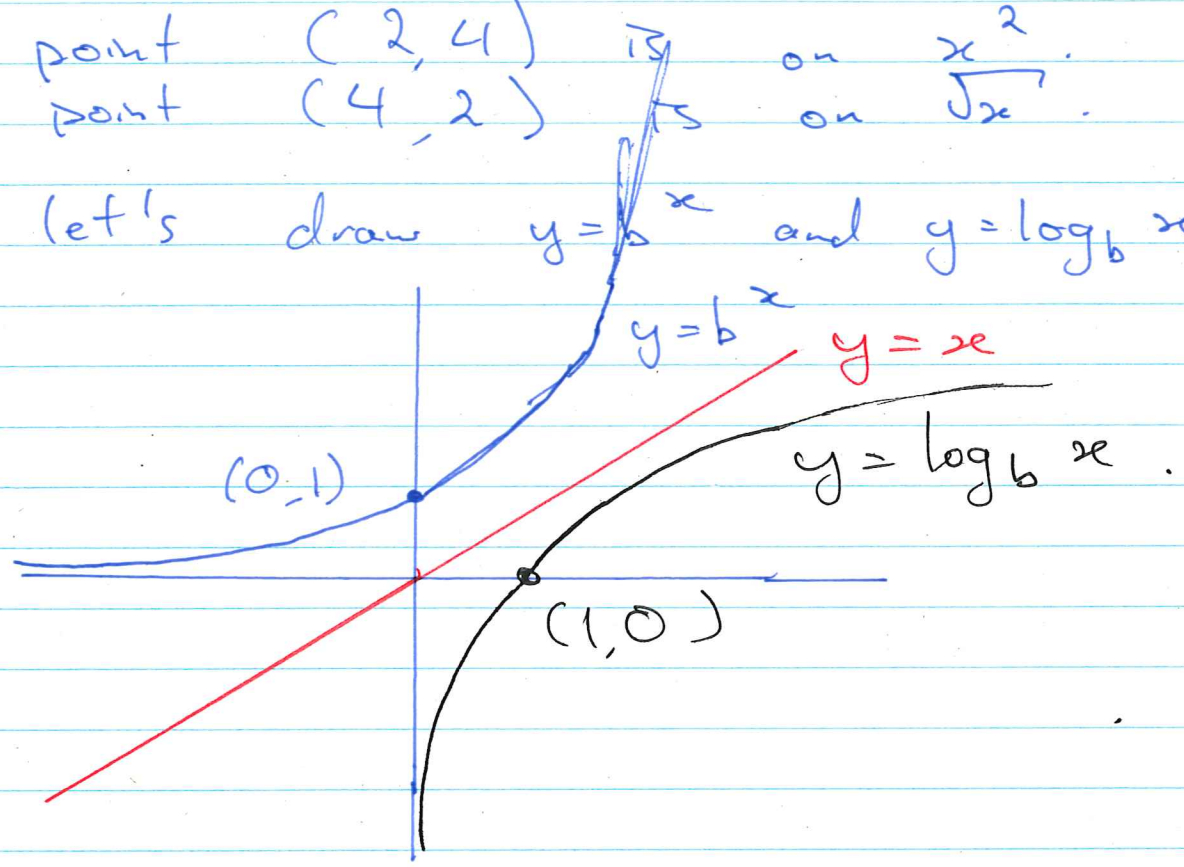 point (2,4) is on x².
point (4,2) is on √x.
let's draw y=b^x and y=log_b x
y=b^x
y=x
y=log_b x.
(0,1)
(1,0)